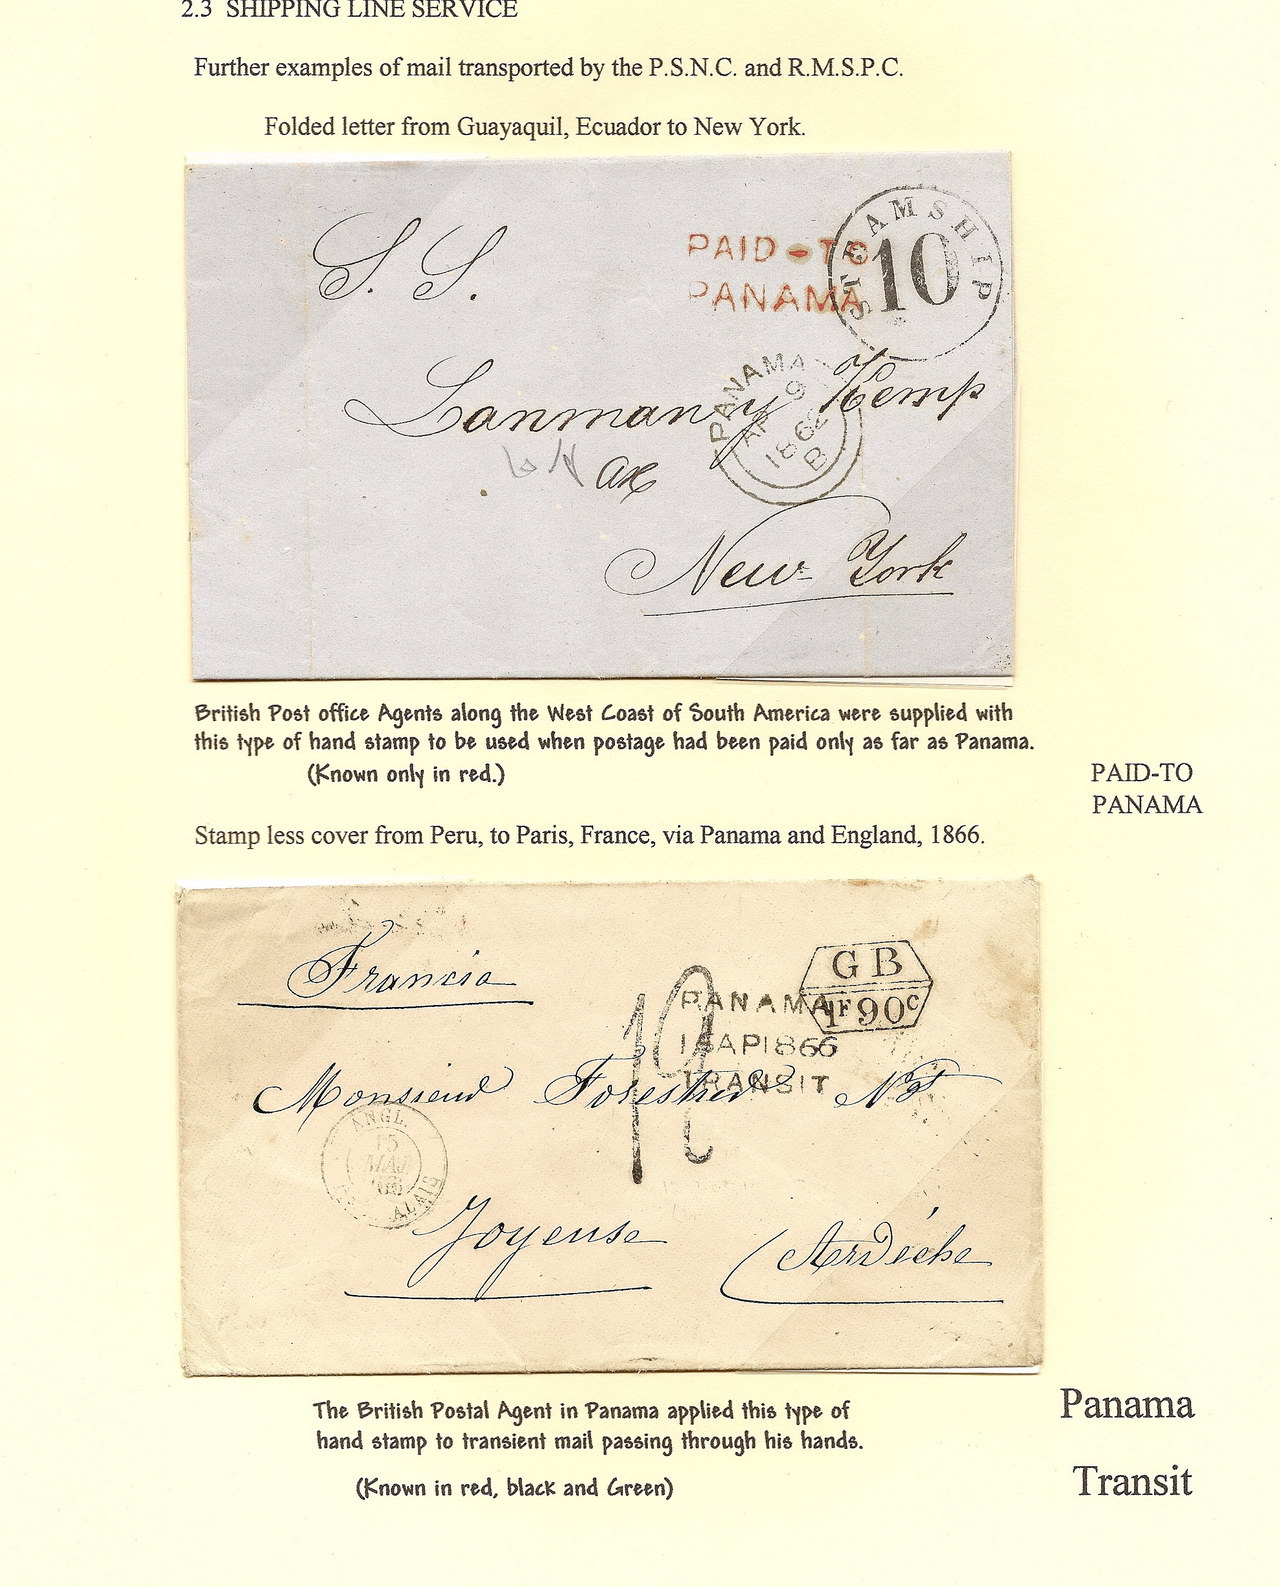 2.3 SHIPPING LINE SERVICE
Further examples of mail transported by the P.S.N.C. and R.M.S.P.C.
Folded letter from Guayaquil, Ecuador to New York.
S. S.
PAID-TO
PANAMA
STEAMSHIP
10
Lanman y Kemp
PANAMA
AP 9
1862
B
New York
British Post office Agents along the West Coast of South America were supplied with
this type of hand stamp to be used when postage had been paid only as far as Panama.
(Known only in red.)
PAID-TO
PANAMA
Stamp less cover from Peru, to Paris, France, via Panama and England, 1866.
Francia
GB
1F90c
PANAMA
AP1866
TRANSIT
Monsieur Forestier
ANGL.
15
MAI
66
CALAIS
Joyeuse
Ardéche
The British Postal Agent in Panama applied this type of
hand stamp to transient mail passing through his hands.
(Known in red, black and Green)
Panama
Transit